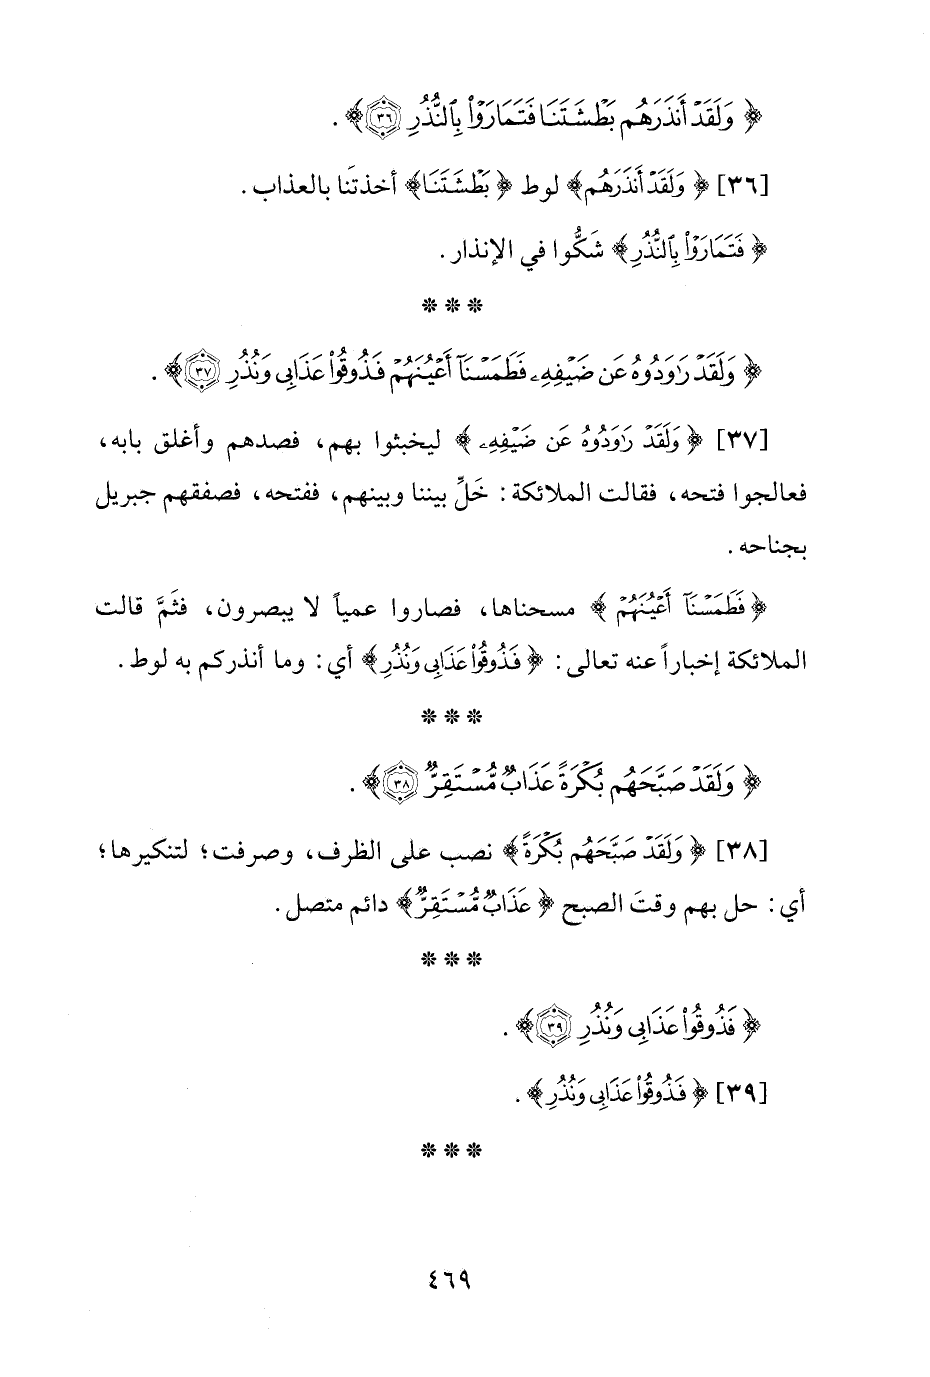 ﴿ وَلَقَدْ أَنذَرَهُم بَطْشَتَنَا فَتَمَارَوْا۟ بِٱلنُّذُرِ ٣٦ ﴾ .
[٣٦] ﴿ وَلَقَدْ أَنذَرَهُم ﴾ لوط ﴿ بَطْشَتَنَا ﴾ أخذتَنا بالعذاب .
﴿ فَتَمَارَوْا۟ بِٱلنُّذُرِ ﴾ شَكُّوا في الإنذار .
* * *
﴿ وَلَقَدْ رَٰوَدُوهُ عَن ضَيْفِهِۦ فَطَمَسْنَآ أَعْيُنَهُمْ فَذُوقُوا۟ عَذَابِى وَنُذُرِ ٣٧ ﴾ .
[٣٧] ﴿ وَلَقَدْ رَٰوَدُوهُ عَن ضَيْفِهِۦ ﴾ ليخبثوا بهم، فصدهم وأغلق بابه،
فعالجوا فتحه، فقالت الملائكة: خَلِّ بيننا وبينهم، ففتحه، فصفقهم جبريل
بجناحه .
﴿ فَطَمَسْنَآ أَعْيُنَهُمْ ﴾ مسحناها، فصاروا عمياً لا يبصرون، فثَمَّ قالت
الملائكة إخباراً عنه تعالى: ﴿ فَذُوقُوا۟ عَذَابِى وَنُذُرِ ﴾ أي: وما أنذركم به لوط .
* * *
﴿ وَلَقَدْ صَبَّحَهُم بُكْرَةً عَذَابٌ مُّسْتَقِرٌّ ٣٨ ﴾ .
[٣٨] ﴿ وَلَقَدْ صَبَّحَهُم بُكْرَةً ﴾ نصب على الظرف، وصرفت؛ لتنكيرها؛
أي: حل بهم وقتَ الصبح ﴿ عَذَابٌ مُّسْتَقِرٌّ ﴾ دائم متصل .
* * *
﴿ فَذُوقُوا۟ عَذَابِى وَنُذُرِ ٣٩ ﴾ .
[٣٩] ﴿ فَذُوقُوا۟ عَذَابِى وَنُذُرِ ﴾ .
* * *
٤٦٩